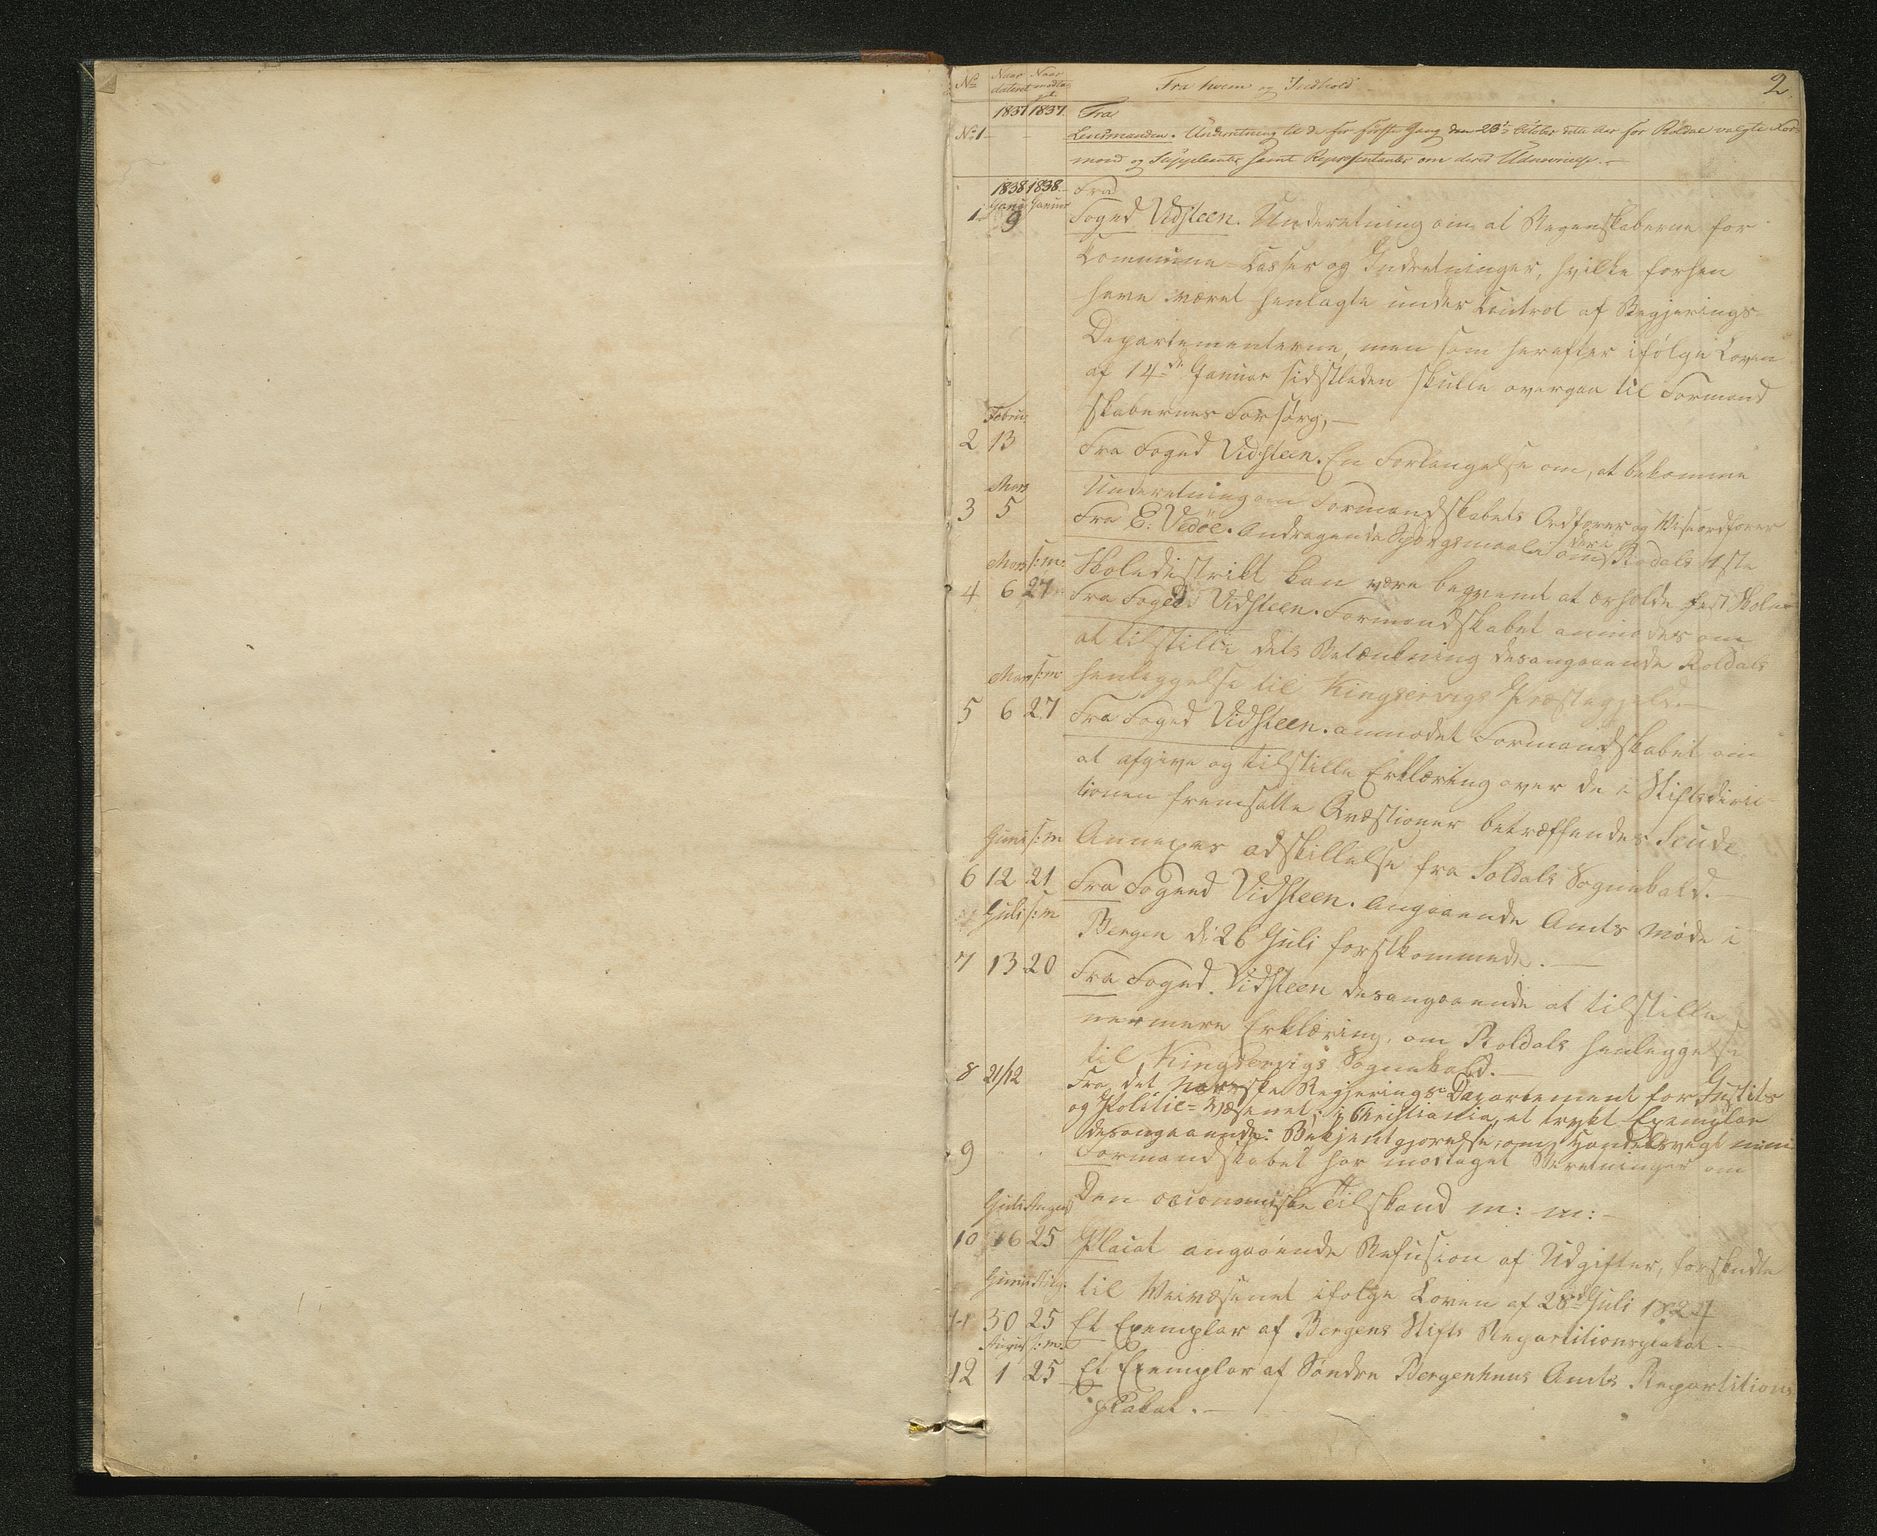 2.
No Naar dateret Naar modtaget Fra hvem og Indhold
1837 1837. Fra
No 1 Lensmanden. Underretning til de for første Gang den 23de Octobr dette Aar for Röldal valgte For-
mænd og Suppleanter samt Repræsentanter om deres Udnævnelse. —
1838 1838. Fra
Januar
1 9 Foged Vidsteen. Underretning om at Regenskaberne for
Commune-Casser og Indretninger, hvilke forhen
have været henlagte under Control af Regjerings-
Departementerne, men som herefter ifölge Loven
af 14de Januar sidstleden skulle overgaa til Formand
skabernes Forsørg. —
Febru.
2 13 Fra Foged Vidsteen. En Forlangelse om, at bekomme
Underretning om Formandskabets Ordförer og Viseordförer
Mars
3 5 Fra E. Vidöe. Andragende Spörgsmaal om Röldals 1ste
Skoledistrikt kan være begvemt at erholde fast Skole
Mars s:m:
4 6 27 Fra Foged Vidsteen. Formandskabet anmodes om
at tilstille dets Betænkning desangaaende Röldals
henleggelse til Kingservigs Præstegjeld. —
Mars s:m
5 6 27 Fra Foged Vidsteen. anmodet Formandskabet om
at afgive og tilstille Erklæring over de i Stiftsdirec-
tionen fremsatte Qvæstioner betræffende Seude
Annexes adskillelse fra Soldals Sognekald. —
Juni s:m
6 12 21 Fra Foged Vidsteen. Angaaende Amts Møde i
Bergen d: 26 Juli førstkommende. —
Juli s:m
7 13 20 Fra Foged Vidsteen desangaaende at tilstille
nærmere Erklæring, om Röldals henleggelse
til Kingservigs Sognekald. —
8 21/12 Fra det Norske Regjerings Departement for Justits
og Politie-Væsenet, i Christiania, et trykt Exemplar
desangaaende: Bekjentgjørelse, om Handelsvegt
9 Formandskabet har modtaget Beretninger om
Den oeconomiske Tilstand m: m: —
Juli August
10 16 25 Placat angaaende Refusion af Udgifter, forskudte
til Veivæsenet ifølge Loven af 28de Juli 1824
Juni Aug.
11 30 25 Et Exemplar af Bergens Stifts Repartitionsplakat. —
August s:m:
12 1 25 Et Exemplar af Søndre Bergenhuus Amts Repartitions
plakat. —